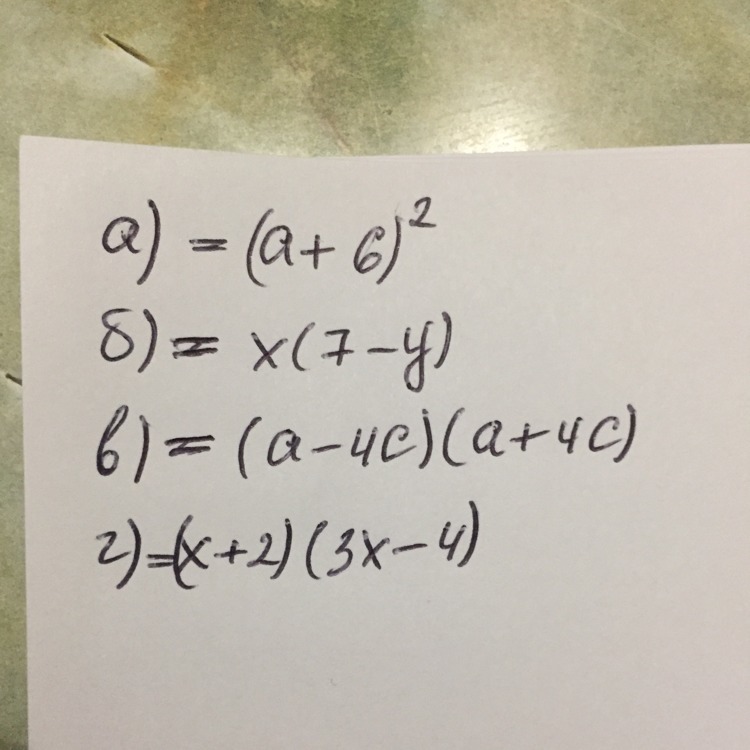 а) = (a + 6)²
б) = x(7 - y)
в) = (a - 4c)(a + 4c)
г) = (x + 2)(3x - 4)